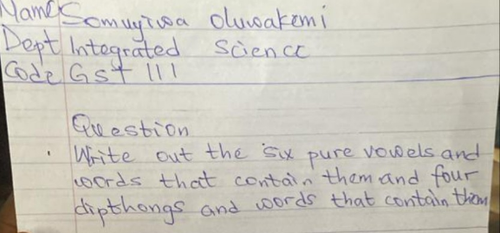 Name Somuyiwa Oluwakemi
Dept Integrated Science
Code Gst 111
Question
Write out the six pure vowels and
words that contain them and four
dipthongs and words that contain them